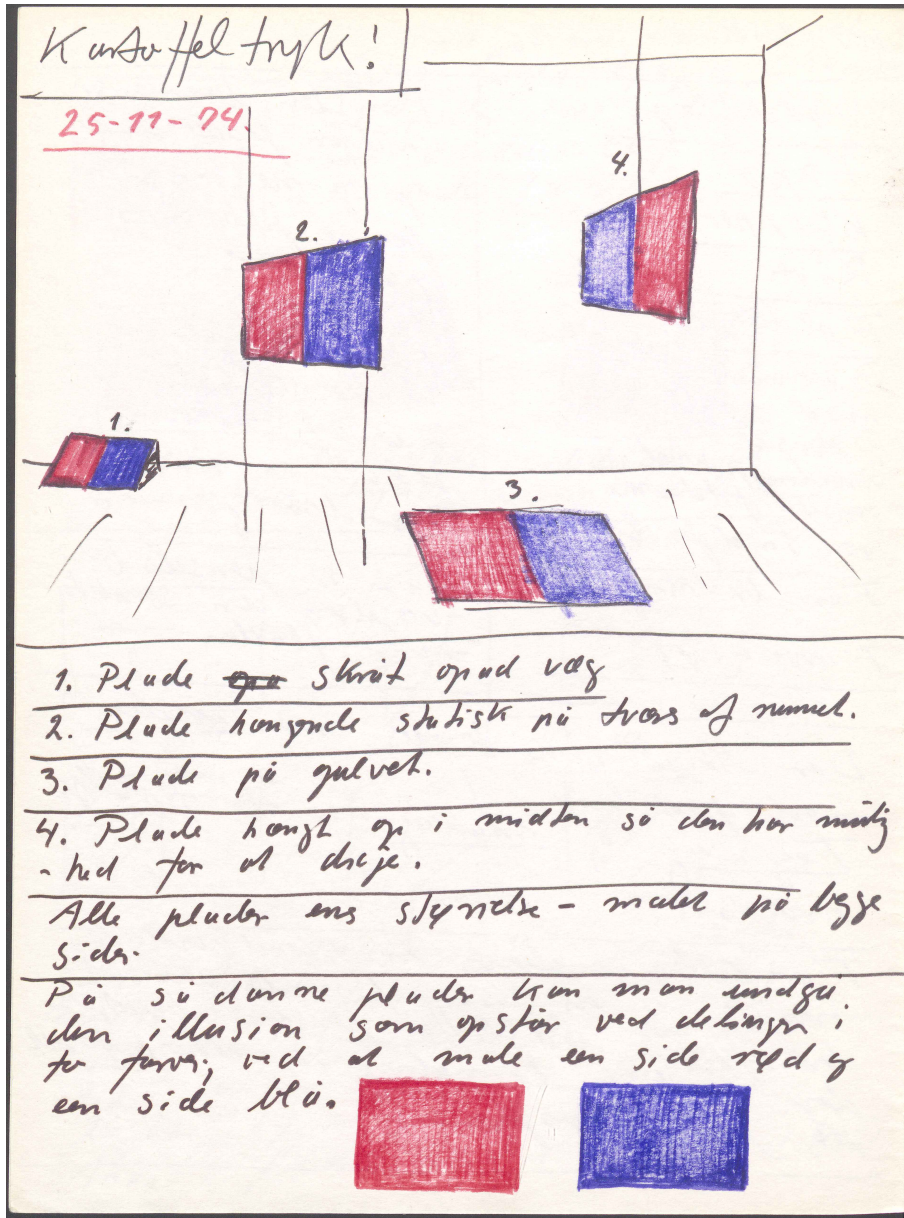 Kartoffeltryk!
25-11-74.
2.
4.
1.
3.
1. Plade skråt opad væg
2. Plade hængende statisk på tværs af rummet.
3. Plade på gulvet.
4. Plade hængt op i midten så den har mulig
-hed for at dreje.
Alle plader ens størrelse - malet på begge
sider.
På sådanne plader kan man undgå
den illusion som opstår ved delingen i
to farver, ved at male een side rød og
een side blå.